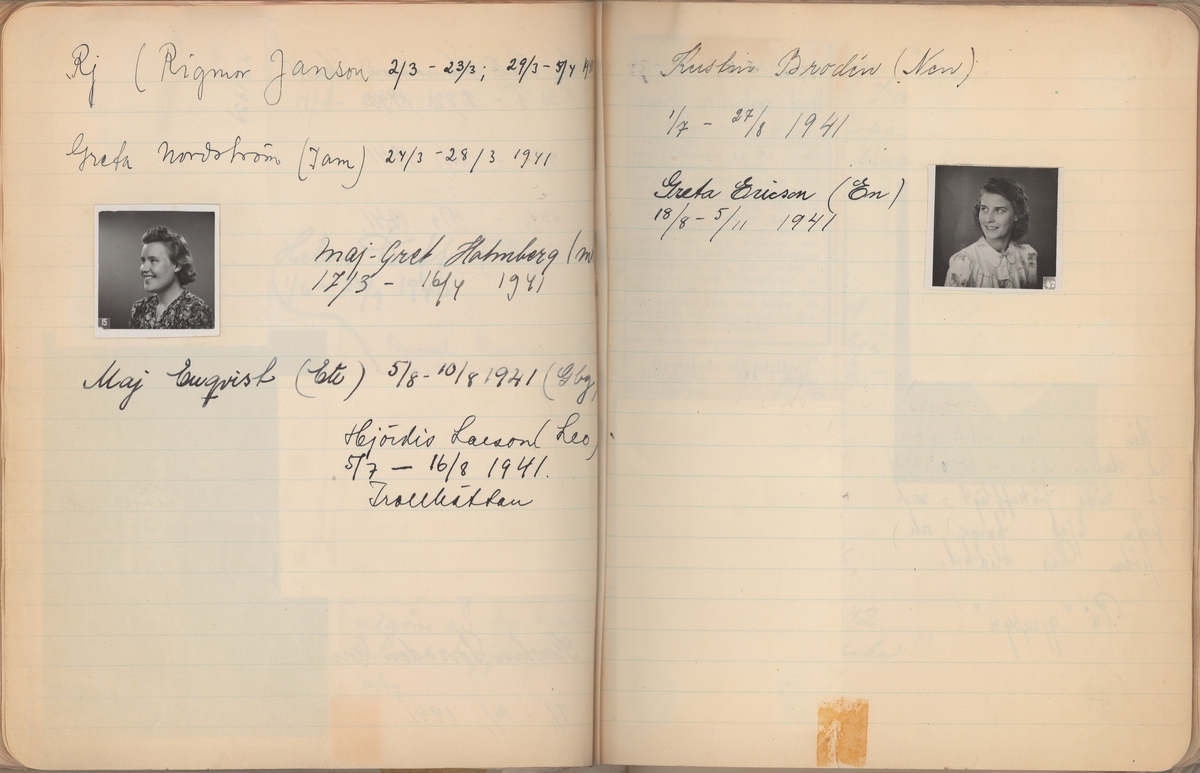 Rj ( Rigmor Janson 2/3 - 23/3; 29/3 - 5/4
Greta Nordström (Jam) 24/3 - 28/3 1941
Maj-Gret Holmberg (m
17/3 - 16/4 1941
15
Maj Enqvist (Ete) 5/8 - 10/8 1941 (Gbg
Hjördis Larson (Leo)
5/7 — 16/8 1941.
Trollhättan
Brodin (Nen)
1/7 - 27/8 1941
Greta Ericson (En)
18/8 - 5/11 1941